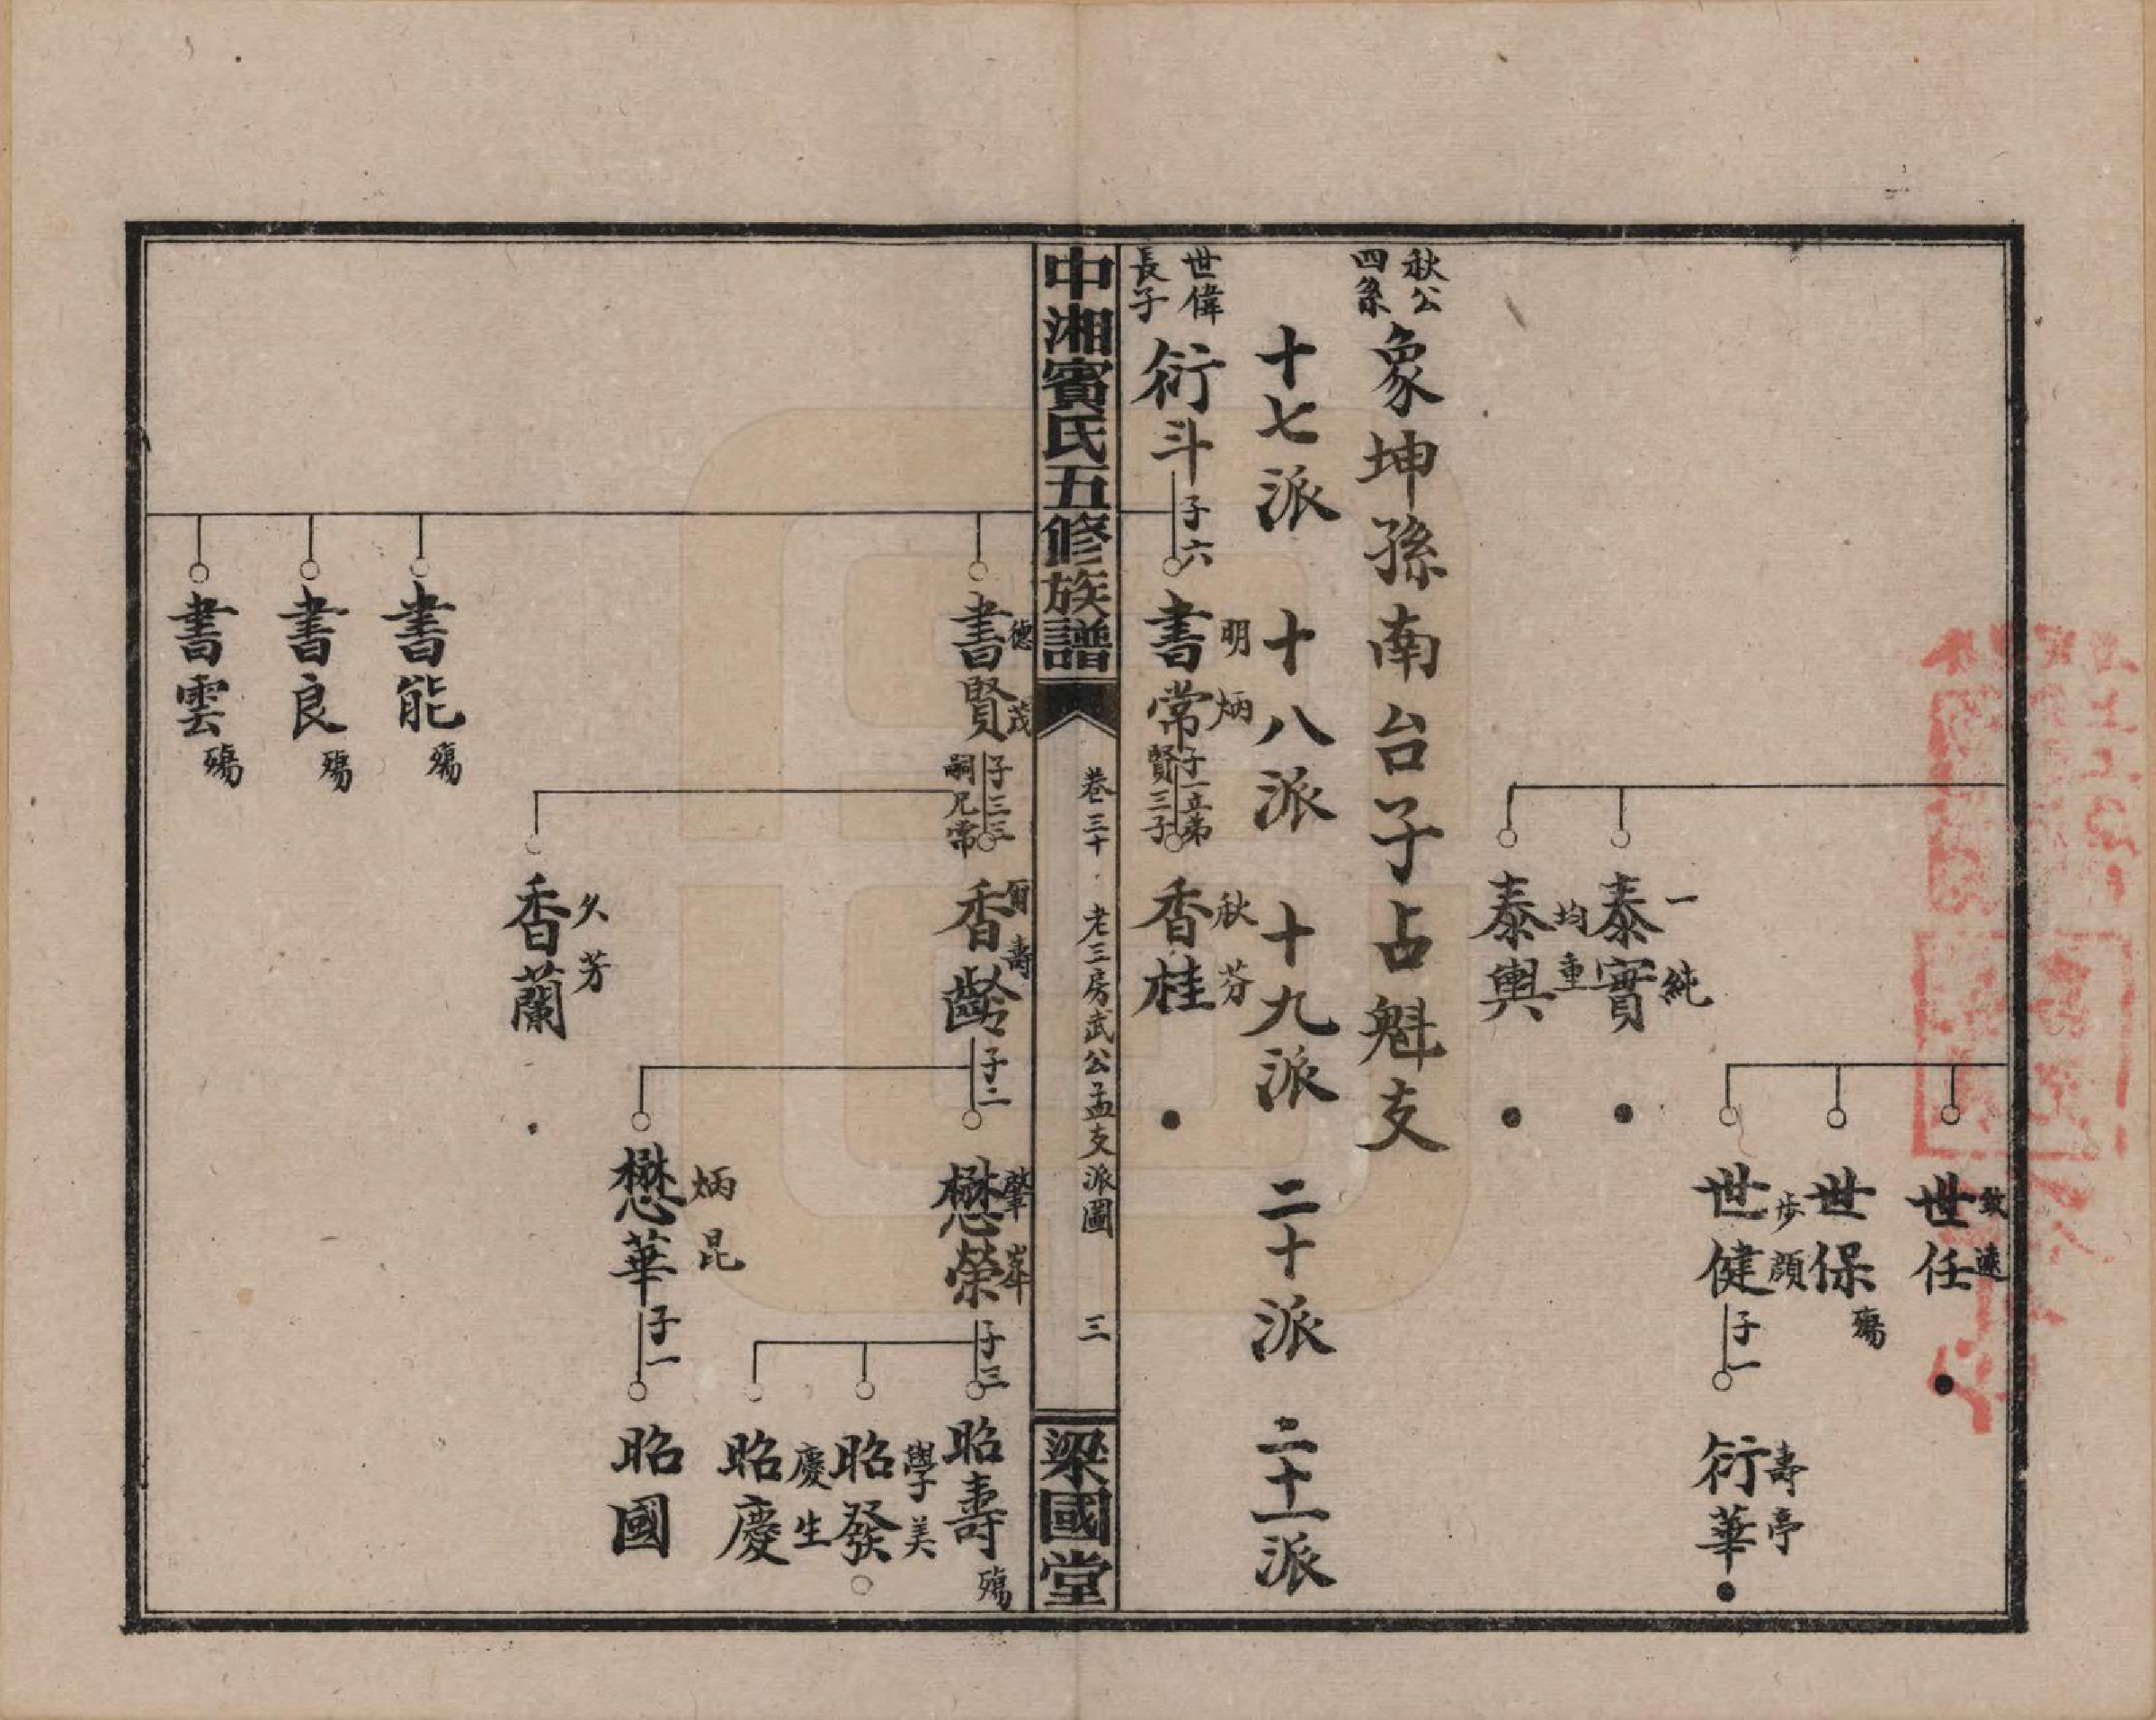 致遠
世任
世保
殤
步顔
世健
子一
壽亭
衍華
一純
泰實
均重
泰輿
秋公
四系
象坤孫南台子占魁支
十七派
十八派
十九派
二十派
二十一派
世偉
長子
衍斗
子六
明炳
書常
子一立弟
賢三子
秋芬
香桂
中湘賓氏五修族譜
卷三十
老三房武公孟支派圖
三
梁國堂
德茂
書賢
子三三
嗣兄常
爾壽
香齡
子二
肇峯
懋榮
子三
昭壽
殤
學美
昭發
慶生
昭慶
炳昆
懋華
子一
昭國
久芳
香蘭
書能
殤
書良
殤
書雲
殤